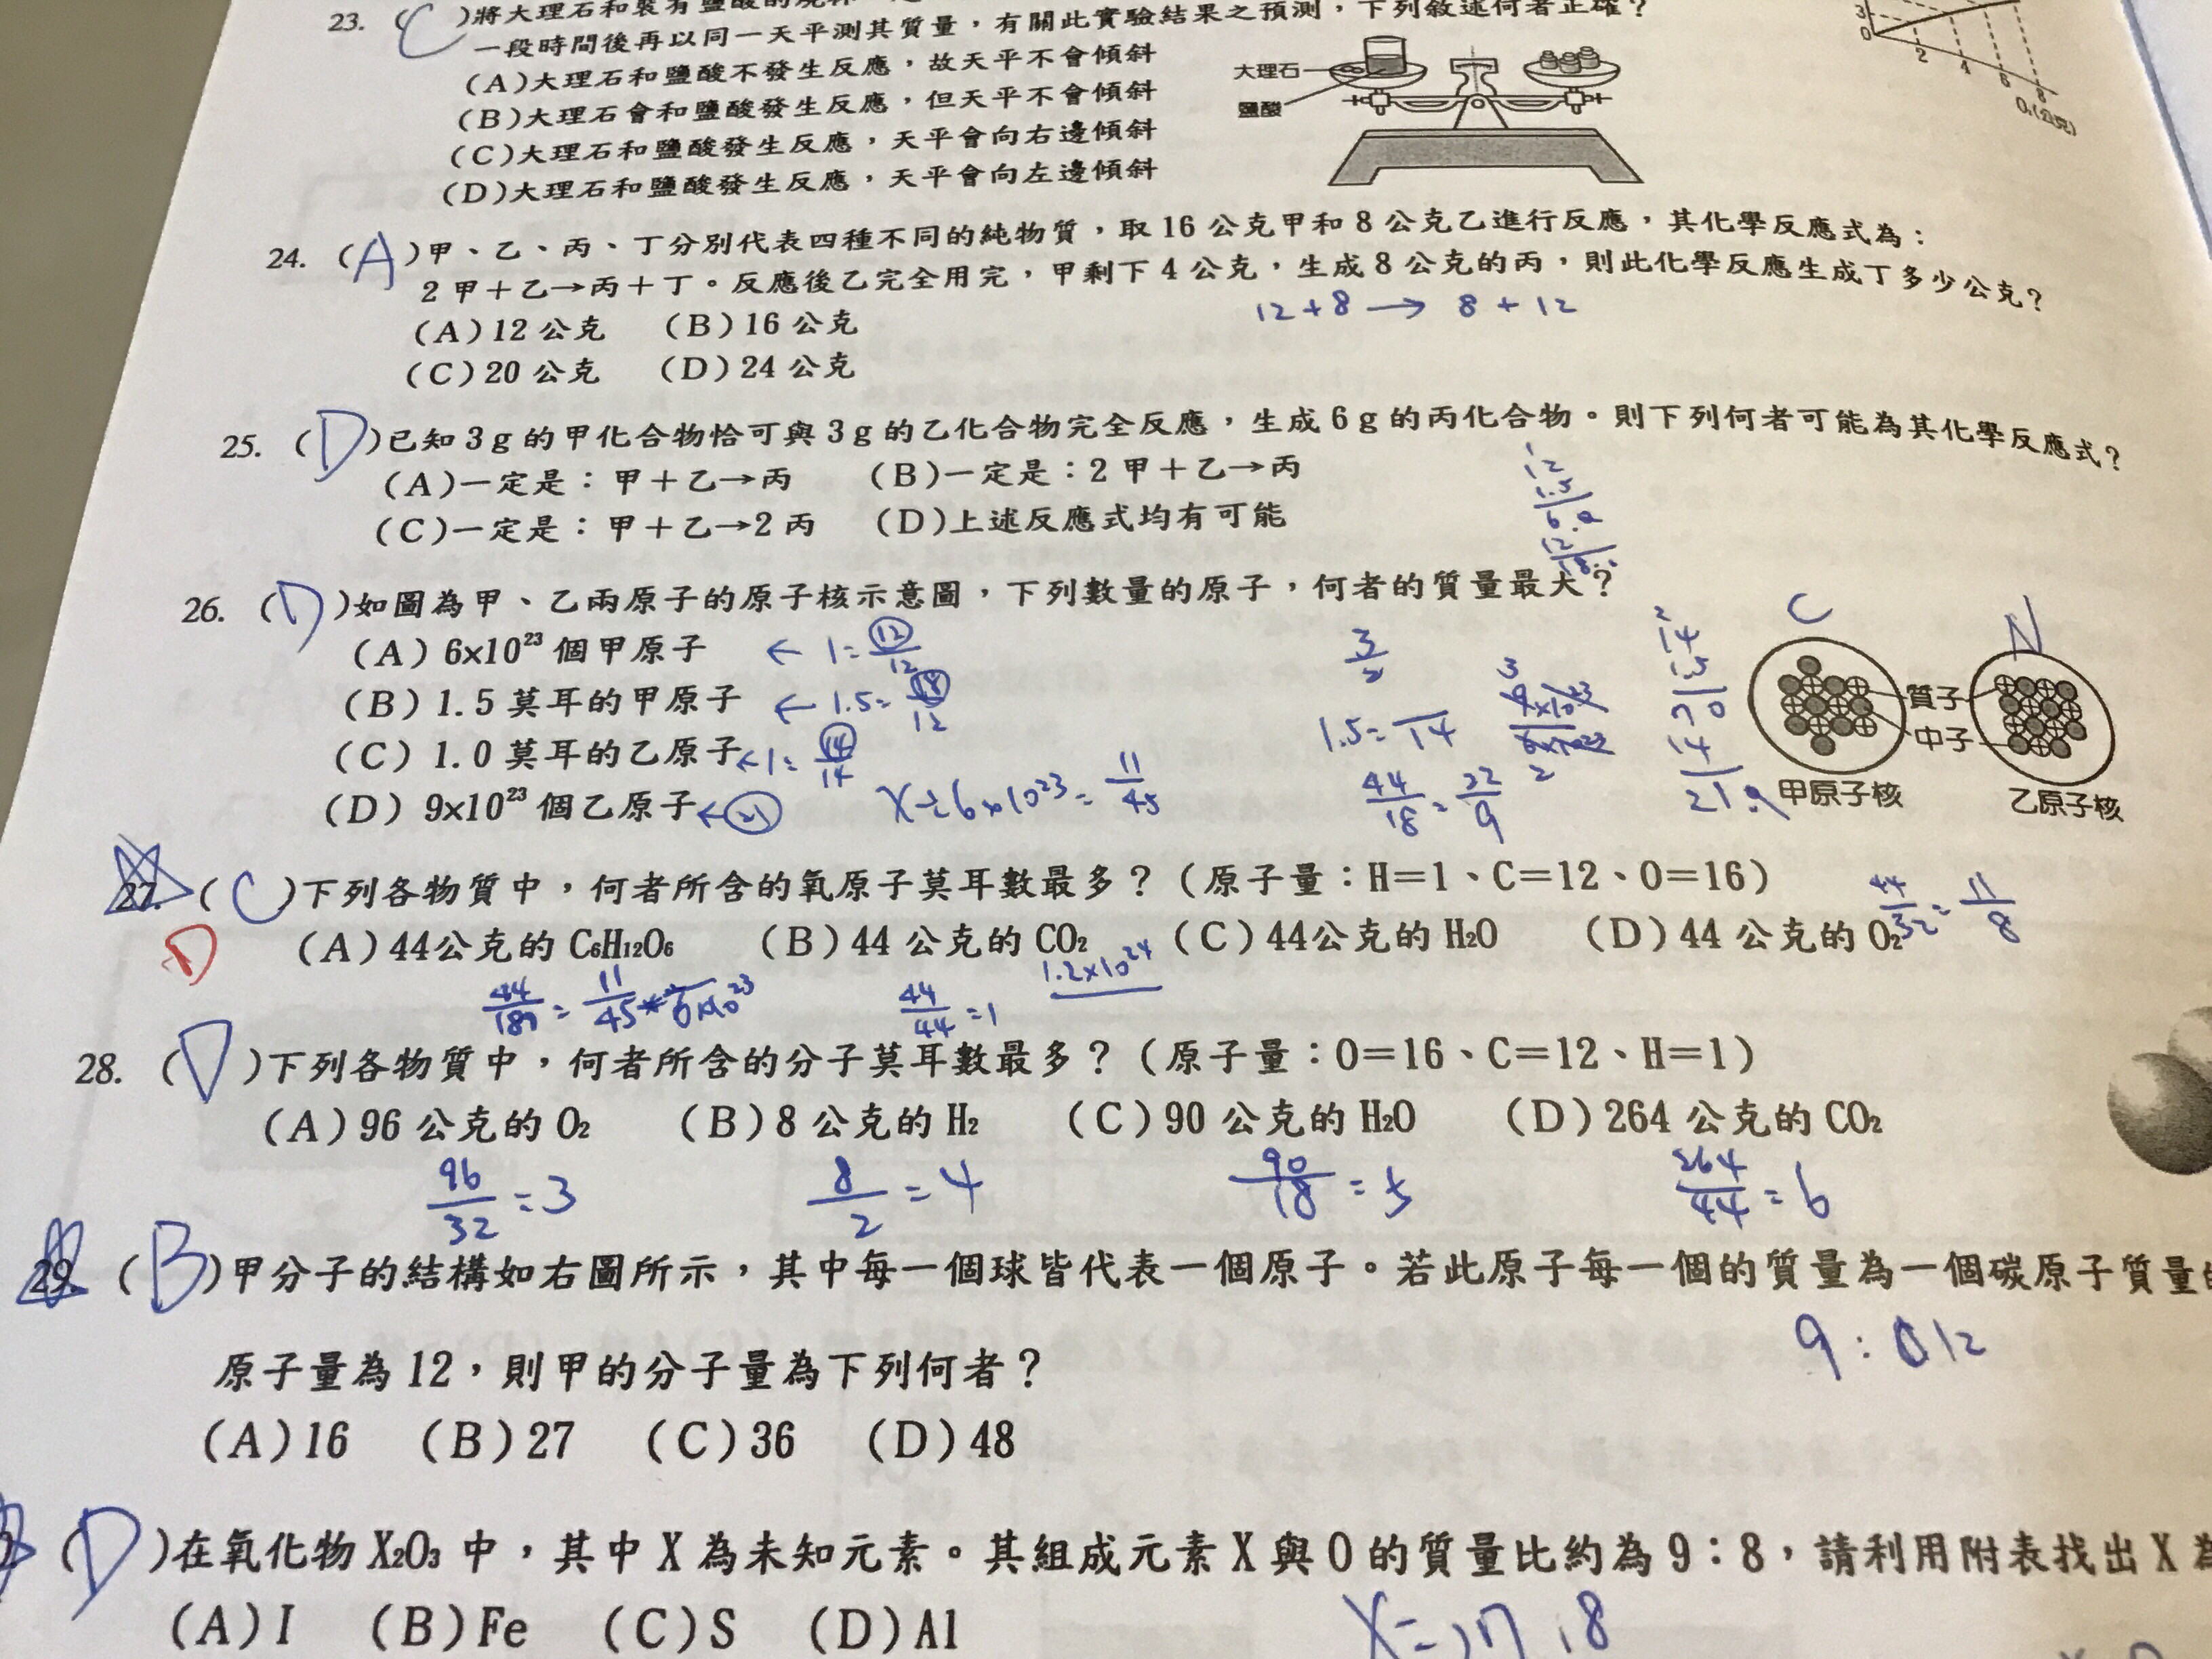 23. ( C )將大理石和裝有鹽酸的
有關此實驗結果之預測，下列敘述何者正確？
一段時間後再以同一天平測其質量，
(A)大理石和鹽酸不發生反應，故天平不會傾斜
(B)大理石會和鹽酸發生反應，但天平不會傾斜
(C)大理石和鹽酸發生反應，天平會向右邊傾斜
(D)大理石和鹽酸發生反應，天平會向左邊傾斜
大理石
鹽酸
3
0
2
4
6
8
O₂(公克)
24. ( A )甲、乙、丙、丁分別代表四種不同的純物質，取 16 公克甲和 8 公克乙進行反應，其化學反應式為：
2 甲＋乙→丙＋丁。反應後乙完全用完，甲剩下 4 公克，生成 8 公克的丙，則此化學反應生成丁多少公克？
12 + 8 → 8 + 12
(A)12 公克 (B)16 公克
(C)20 公克 (D)24 公克
25. ( D )已知 3 g 的甲化合物恰可與 3 g 的乙化合物完全反應，生成 6 g 的丙化合物。則下列何者可能為其化學反應式？
(A)一定是：甲＋乙→丙 (B)一定是：2 甲＋乙→丙
(C)一定是：甲＋乙→2 丙 (D)上述反應式均有可能
12
1.5
26. ( D )如圖為甲、乙兩原子的原子核示意圖，下列數量的原子，何者的質量最大？
(A) 6x10²³ 個甲原子 ← 1 = 12/12
(B) 1.5 莫耳的甲原子 ← 1.5 = 18/12
(C) 1.0 莫耳的乙原子 ← 1 = 14/14
(D) 9x10²³ 個乙原子 ← 21
x÷6x10²³ = 11/45
3/2
1.5 = /14
44/18 = 22/9
14
15
70
14
C
N
質子
中子
甲原子核
乙原子核
27. ( C )下列各物質中，何者所含的氧原子莫耳數最多？（原子量：H＝1、C＝12、O＝16）
D
(A)44公克的 C₆H₁₂O₆ (B)44 公克的 CO₂ (C)44公克的 H₂O (D)44 公克的 O₂
44/32 = 11/8
44/180 = 11/45
44/44 = 1
1.2x10²⁴
28. ( D )下列各物質中，何者所含的分子莫耳數最多？（原子量：O＝16、C＝12、H＝1）
(A)96 公克的 O₂ (B)8 公克的 H₂ (C)90 公克的 H₂O (D)264 公克的 CO₂
96/32 = 3 8/2 = 4 90/18 = 5 264/44 = 6
29. ( B )甲分子的結構如右圖所示，其中每一個球皆代表一個原子。若此原子每一個的質量為一個碳原子質量的
9 : 12
原子量為 12，則甲的分子量為下列何者？
(A)16 (B)27 (C)36 (D)48
( D )在氧化物 X₂O₃ 中，其中 X 為未知元素。其組成元素 X 與 O 的質量比約為 9：8，請利用附表找出 X 為
(A)I (B)Fe (C)S (D)Al